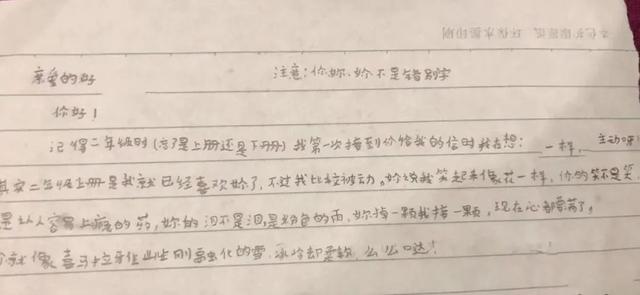 亲爱的妳
注意:你妳、妳不是错别字
你好!
记得二年级时(忘了是上册还是下册)我第一次接到你给我的信时我在想: 一样, 主动呀
其实二年级上册是我就已经喜欢妳了,不过我比较被动。妳说我笑起来像花一样,你的笑不是笑
是让人容易上瘾的药,妳的泪不是泪是粉色的雨,妳掉一颗我接一颗,现在心都满了。
就像喜马拉牙住山上刚融化的雪,冰冷却柔软,么么哒!